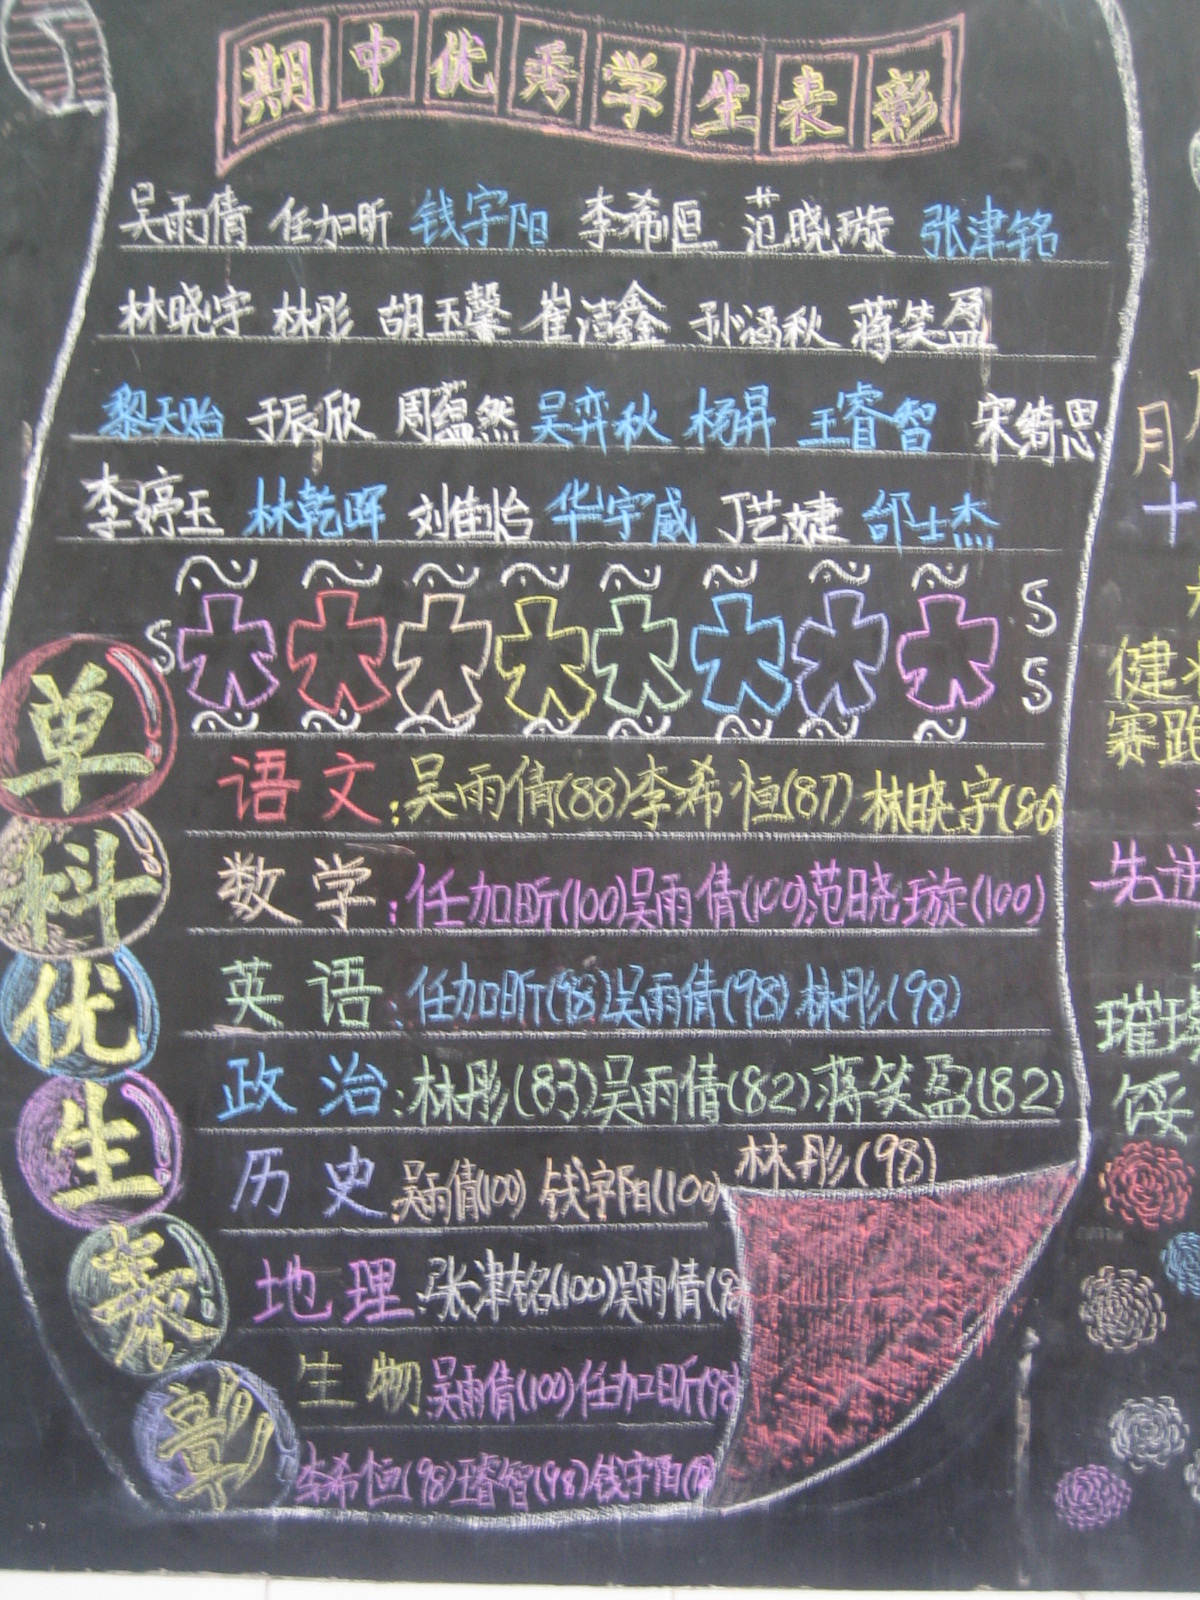 期中优秀学生表彰
吴雨倩 任加昕 钱宇阳 李希恒 范晓璇 张津铭
林晓宇 林彤 胡玉馨 崔洁鑫 孙涵秋 蒋笑盈
黎天贻 于辰欣 周蕴然 吴弈秋 杨昇 王睿智 宋绮思
李婷玉 林乾晖 刘佳怡 华宇威 丁艺婕 邰士杰
单科优生表彰
语文:吴雨倩(88)李希恒(87)林晓宇(86)
数学:任加昕(100)吴雨倩(100)范晓璇(100)
英语:任加昕(98)吴雨倩(98)林彤(98)
政治:林彤(83)吴雨倩(82)蒋笑盈(82)
历史:吴雨倩(100) 钱宇阳(100)林彤(98)
地理:张津铭(100)吴雨倩(9
生物 吴雨倩(100)任加昕(98
李希恒(98)王睿智(98)钱宇阳(
月
十
健
赛跑
先进
璀